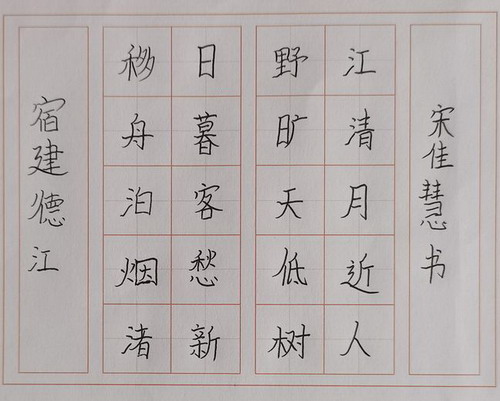 宿建德江
移舟泊烟渚
日暮客愁新
野旷天低树
江清月近人
宋佳慧书